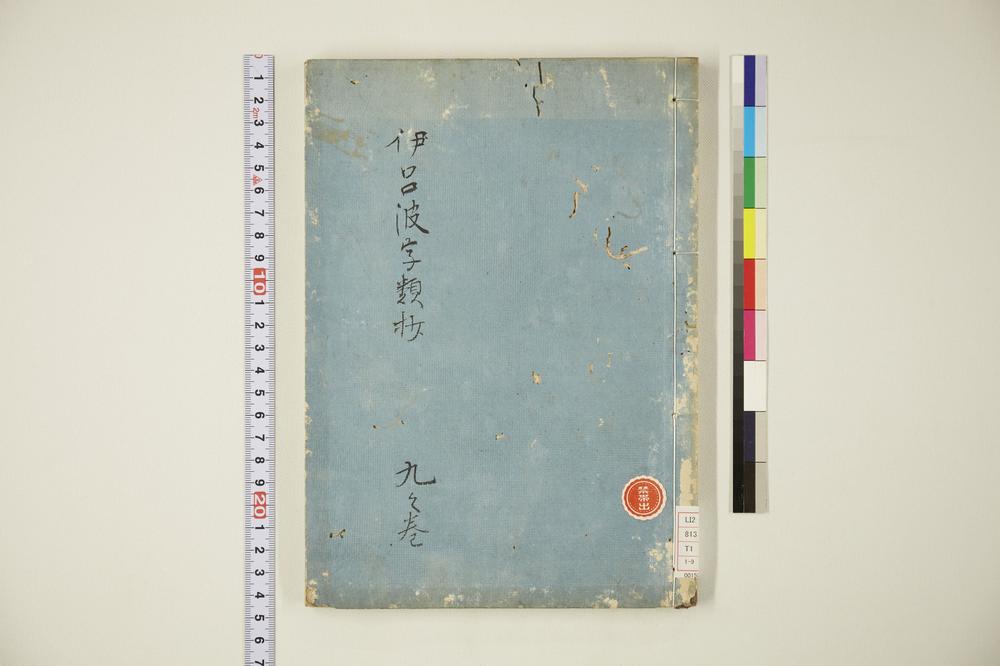 伊呂波字類抄
九之巻
禁帯出
LI2
813
T1
1-9
0015
0 1 2 3 4 5 6 7 8 9 10 1 2 3 4 5 6 7 8 9 20 1 2 3 4 5 6 7
2m